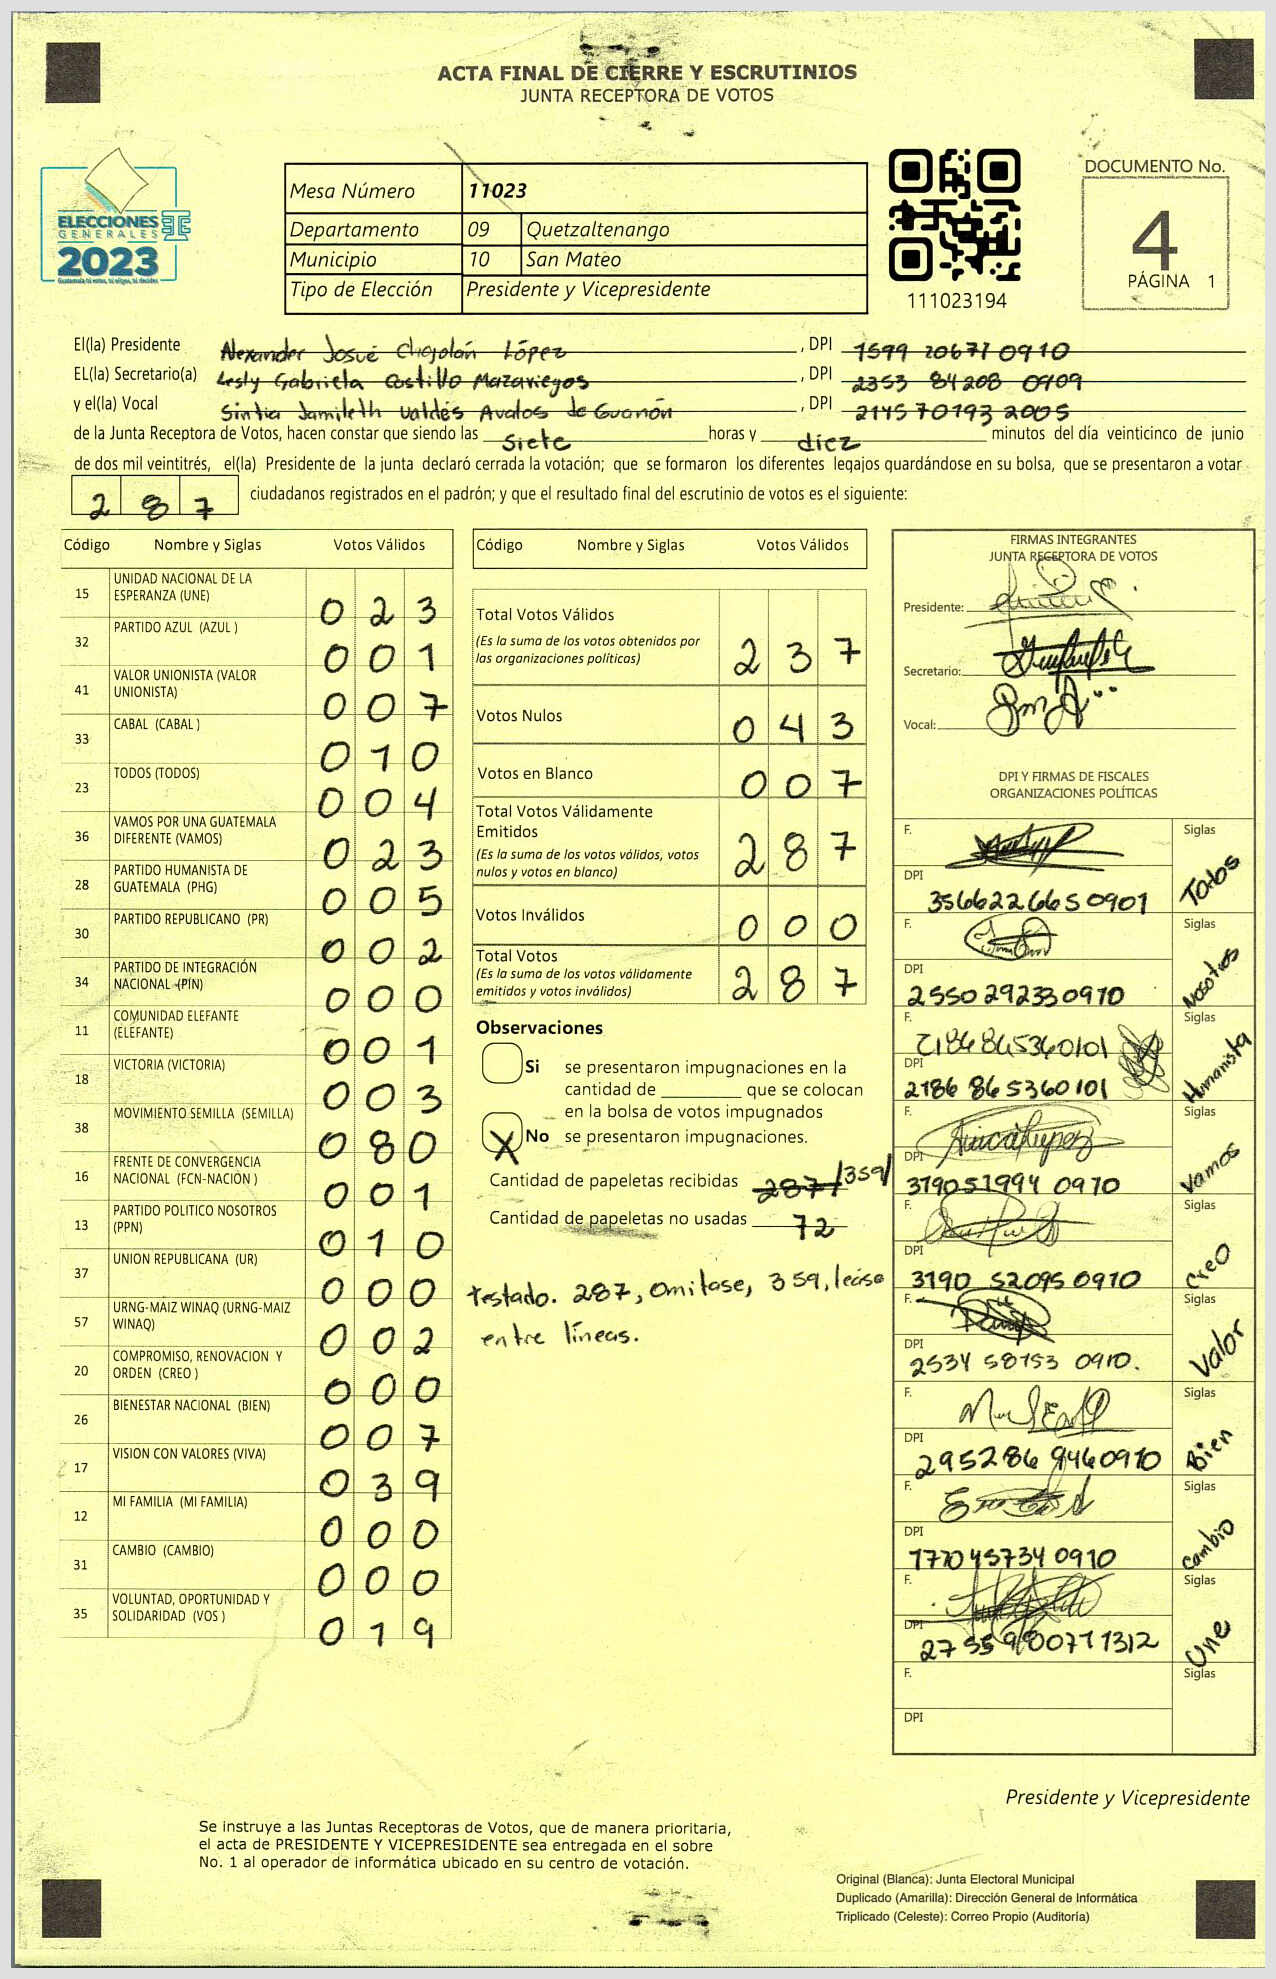 ACTA FINAL DE CIERRE Y ESCRUTINIOS
JUNTA RECEPTORA DE VOTOS
ELECCIONES
GENERALES
2023
Mesa Número 11023
Departamento 09 Quetzaltenango
Municipio 10 San Mateo
Tipo de Elección Presidente y Vicepresidente
111023194
DOCUMENTO No.
4
PÁGINA 1
El(la) Presidente Alexander Josué Chojolán López, DPI 1599 20671 0910
EL(la) Secretario(a) Lesly Gabriela Castillo Mazariegos, DPI 2353 84208 0909
y el(la) Vocal Sintia Jamileth Valdés Avalos de Guanón, DPI 2145 70193 2005
de la Junta Receptora de Votos, hacen constar que siendo las siete horas y diez minutos del día veinticinco de junio
de dos mil veintitrés, el(la) Presidente de la junta declaró cerrada la votación; que se formaron los diferentes legajos guardándose en su bolsa, que se presentaron a votar
287 ciudadanos registrados en el padrón; y que el resultado final del escrutinio de votos es el siguiente:
Código Nombre y Siglas Votos Válidos
15 UNIDAD NACIONAL DE LA ESPERANZA (UNE) 023
32 PARTIDO AZUL (AZUL ) 001
41 VALOR UNIONISTA (VALOR UNIONISTA) 007
33 CABAL (CABAL ) 010
23 TODOS (TODOS) 004
36 VAMOS POR UNA GUATEMALA DIFERENTE (VAMOS) 023
28 PARTIDO HUMANISTA DE GUATEMALA (PHG) 005
30 PARTIDO REPUBLICANO (PR) 002
34 PARTIDO DE INTEGRACIÓN NACIONAL (PIN) 000
11 COMUNIDAD ELEFANTE (ELEFANTE) 001
18 VICTORIA (VICTORIA) 003
38 MOVIMIENTO SEMILLA (SEMILLA) 080
16 FRENTE DE CONVERGENCIA NACIONAL (FCN-NACIÓN ) 001
13 PARTIDO POLITICO NOSOTROS (PPN) 010
37 UNION REPUBLICANA (UR) 000
57 URNG-MAIZ WINAQ (URNG-MAIZ WINAQ) 002
20 COMPROMISO, RENOVACION Y ORDEN (CREO ) 000
26 BIENESTAR NACIONAL (BIEN) 007
17 VISION CON VALORES (VIVA) 039
12 MI FAMILIA (MI FAMILIA) 000
31 CAMBIO (CAMBIO) 000
35 VOLUNTAD, OPORTUNIDAD Y SOLIDARIDAD (VOS ) 019
Código Nombre y Siglas Votos Válidos
Total Votos Válidos 237
(Es la suma de los votos obtenidos por
las organizaciones políticas)
Votos Nulos 043
Votos en Blanco 007
Total Votos Válidamente
Emitidos 287
(Es la suma de los votos válidos, votos
nulos y votos en blanco)
Votos Inválidos 000
Total Votos 287
(Es la suma de los votos válidamente
emitidos y votos inválidos)
Observaciones
Si se presentaron impugnaciones en la
cantidad de ________ que se colocan
en la bolsa de votos impugnados
X No se presentaron impugnaciones.
Cantidad de papeletas recibidas 287 /359/
Cantidad de papeletas no usadas 72
testado. 287, Omitase, 359, léase
entre líneas.
FIRMAS INTEGRANTES
JUNTA RECEPTORA DE VOTOS
Presidente:
Secretario:
Vocal:
DPI Y FIRMAS DE FISCALES
ORGANIZACIONES POLÍTICAS
F. Siglas Todos
DPI 356622665 0901
F. Siglas Nosotros
DPI 2550 29233 0910
F. 2186 86536 0101 Siglas Humanista
DPI 2186 86536 0101
F. Siglas Vamos
DPI 319051994 0910
F. Siglas Creo
DPI 3190 52095 0910
F. Siglas Valor
DPI 2534 58753 0910.
F. Siglas Bien
DPI 295286 9460910
F. Siglas Cambio
DPI 1770 45734 0910
F. Siglas Une
DPI 2755 980071 1312
F. Siglas
DPI
Presidente y Vicepresidente
Se instruye a las Juntas Receptoras de Votos, que de manera prioritaria,
el acta de PRESIDENTE Y VICEPRESIDENTE sea entregada en el sobre
No. 1 al operador de informática ubicado en su centro de votación.
Original (Blanca): Junta Electoral Municipal
Duplicado (Amarilla): Dirección General de Informática
Triplicado (Celeste): Correo Propio (Auditoría)